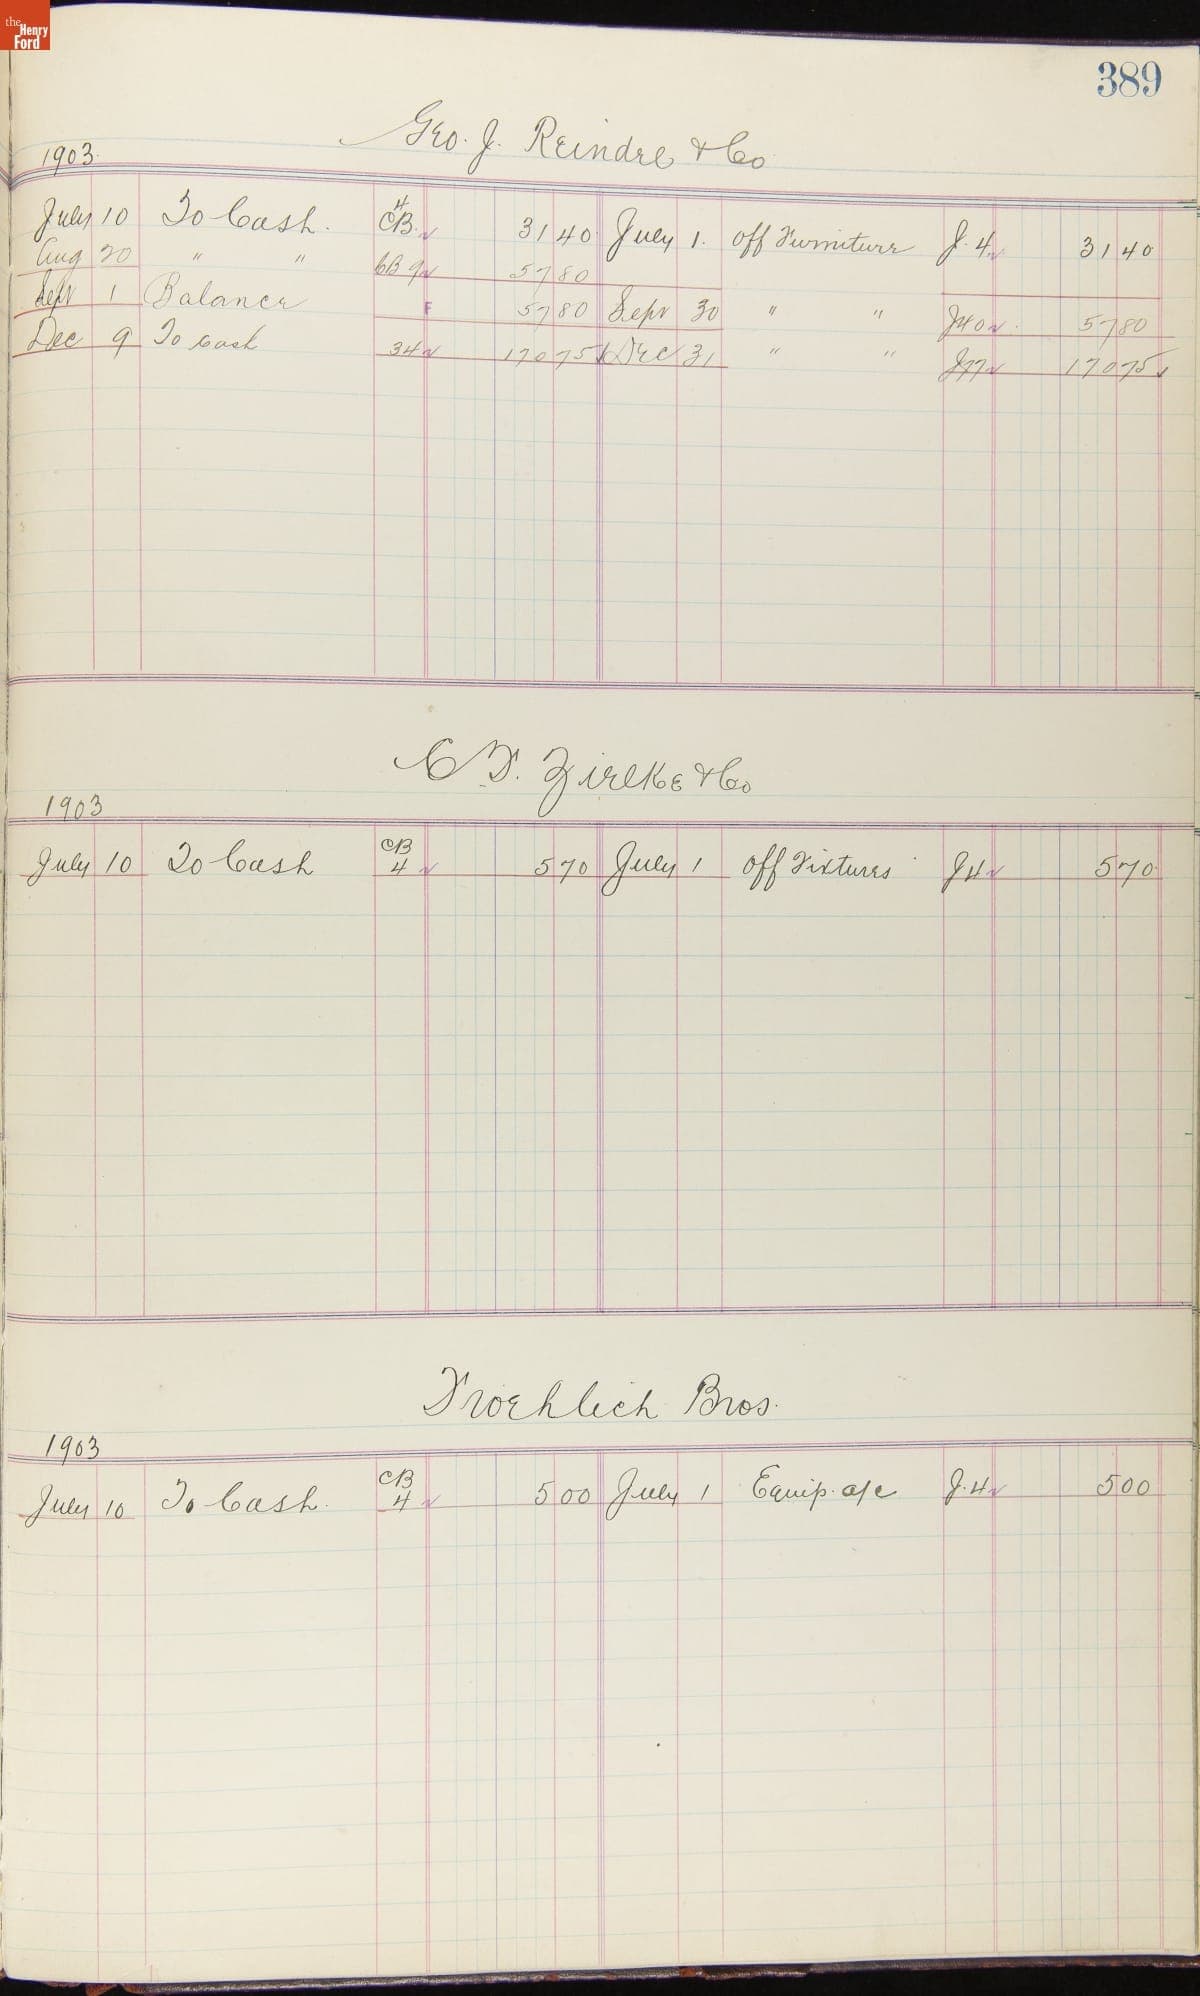 the Henry Ford
389
Geo. J. Reindel & Co
1903
July 10 To Cash. CB 4 31 40 July 1. Off Furniture J. 4 31 40
Aug 20 " " CB 9 57 80
Sept 1 Balance F 57 80 Sept 30 " " J40 57 80
Dec 9 To Cash 34 170 75 Dec 31 " " J77 170 75
C F. Zielke & Co
1903
July 10 To Cash CB 4 5 70 July 1 Off Fixtures J4 5 70
Froehlich Bros.
1903
July 10 To Cash. CB 4 5 00 July 1 Equip. a/c J. 4 5 00